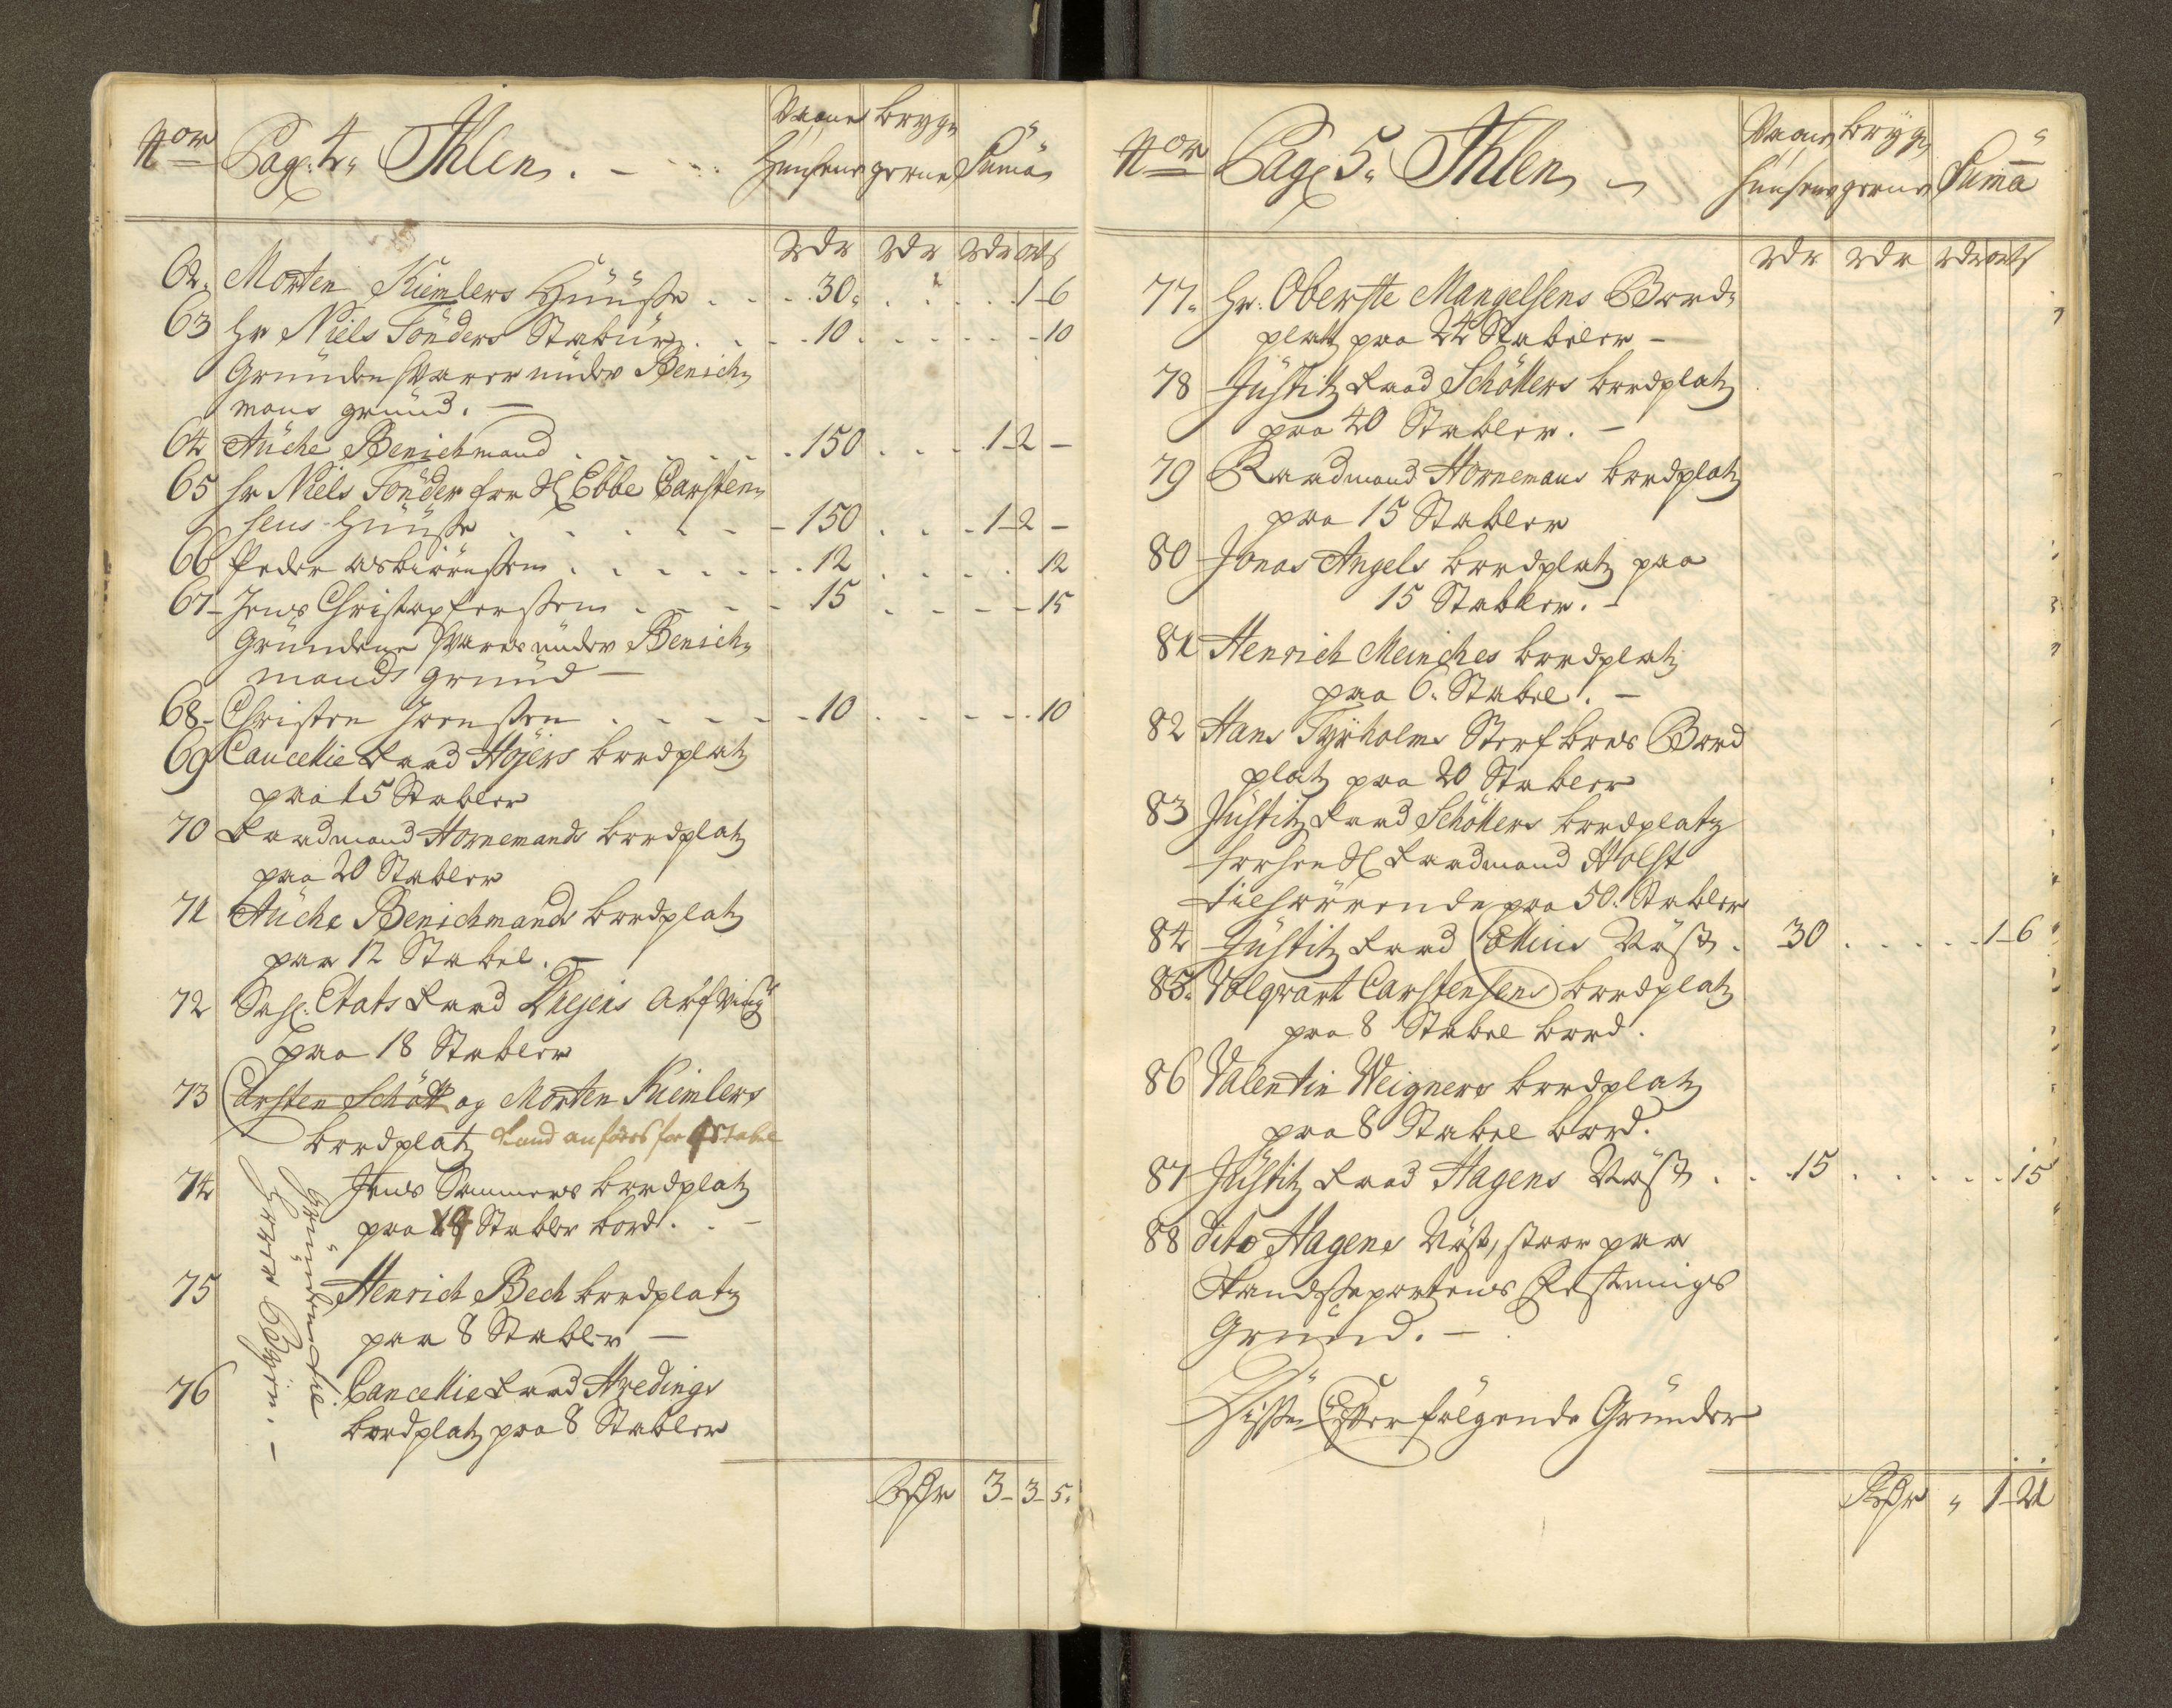 Nor Pag: 4. Ihlen. Vaane Brygg
Huusene gerne Suma
Rdr Rdr Rdr ort s
62. Morten Kiemlers Huuse 30. 1-6
63 Hr Niels Tönders Stabur 10 10
Grunden svarer under Benich
mans grund.
64 Auche Benichmand 150 1-2 -
65 Hr Niels Tönder for Sl Ebbe Carsten
sens Huuse 150 1-2 -
66 Peder Asbiörnssen 12 12
67 Jens Christopherssen 15 15
Grundene svarer under Benich
mands grund
68 Christen Joenssen 10 10
69 Cancellie Raad Höjers bordplatz
paa 15 Stabler
70 Raadmand Hornemands bordplatz
paa 20 Stabler
71 Auche Benichmands bordplatz
paa 12 Stabel.
72 Etats Raad Drejers Arfving
paa 18 Stabler
73 Carsten Schött og Morten Kiemlers
bordplatz kand anföres for 4 Stabel
74 Jens Sommers bordplatz
paa Stabler bord.
75 Henrich Bech bordplatz
paa 8 Stabler
76 Cancellie Raad Hvedings
bordplatz paa 8 Stabler
Grunden til
hörer Byen.
Rdr 3-3-5.
Nor Pag 5. Ihlen Vaane Brygg
Huusene gerne Suma
Rdr Rdr Rdr ort s
77. Hr. Oberste Mangelsens Bord
platz paa 24 Stabeler
78 Justitz Raad Schöllers bordplatz
paa 40 Stabler.
79 Raadmand Hornemans bordplatz
paa 15 Stabler
80 Jonas Angels bordplatz paa
15 Stabler.
81 Henrich Meinches bordplatz
paa 6. Stabel.
82 Hans Tyrholms Sterfboes Bord
platz paa 20 Stabler
83 Justitz Raad Schöllers bordplatz
forhen Sl Raadmand Holst
tilhörende paa 50. Stabler
84 Justitz Raad Collins Nöst. 30 1-6
85. Volqvart Carstensens bordplatz
paa 8 Stabel bord.
86 Valentin Weigners bordplatz
paa 8 Stabel bord.
87 Justitz Raad Hagens Nöst 15 15
88 dito Hagens Nöst, staar paa
Skandsseportens Festnings
Grund.
Disse Efterfölgende Grunder
Rdr " 1-21